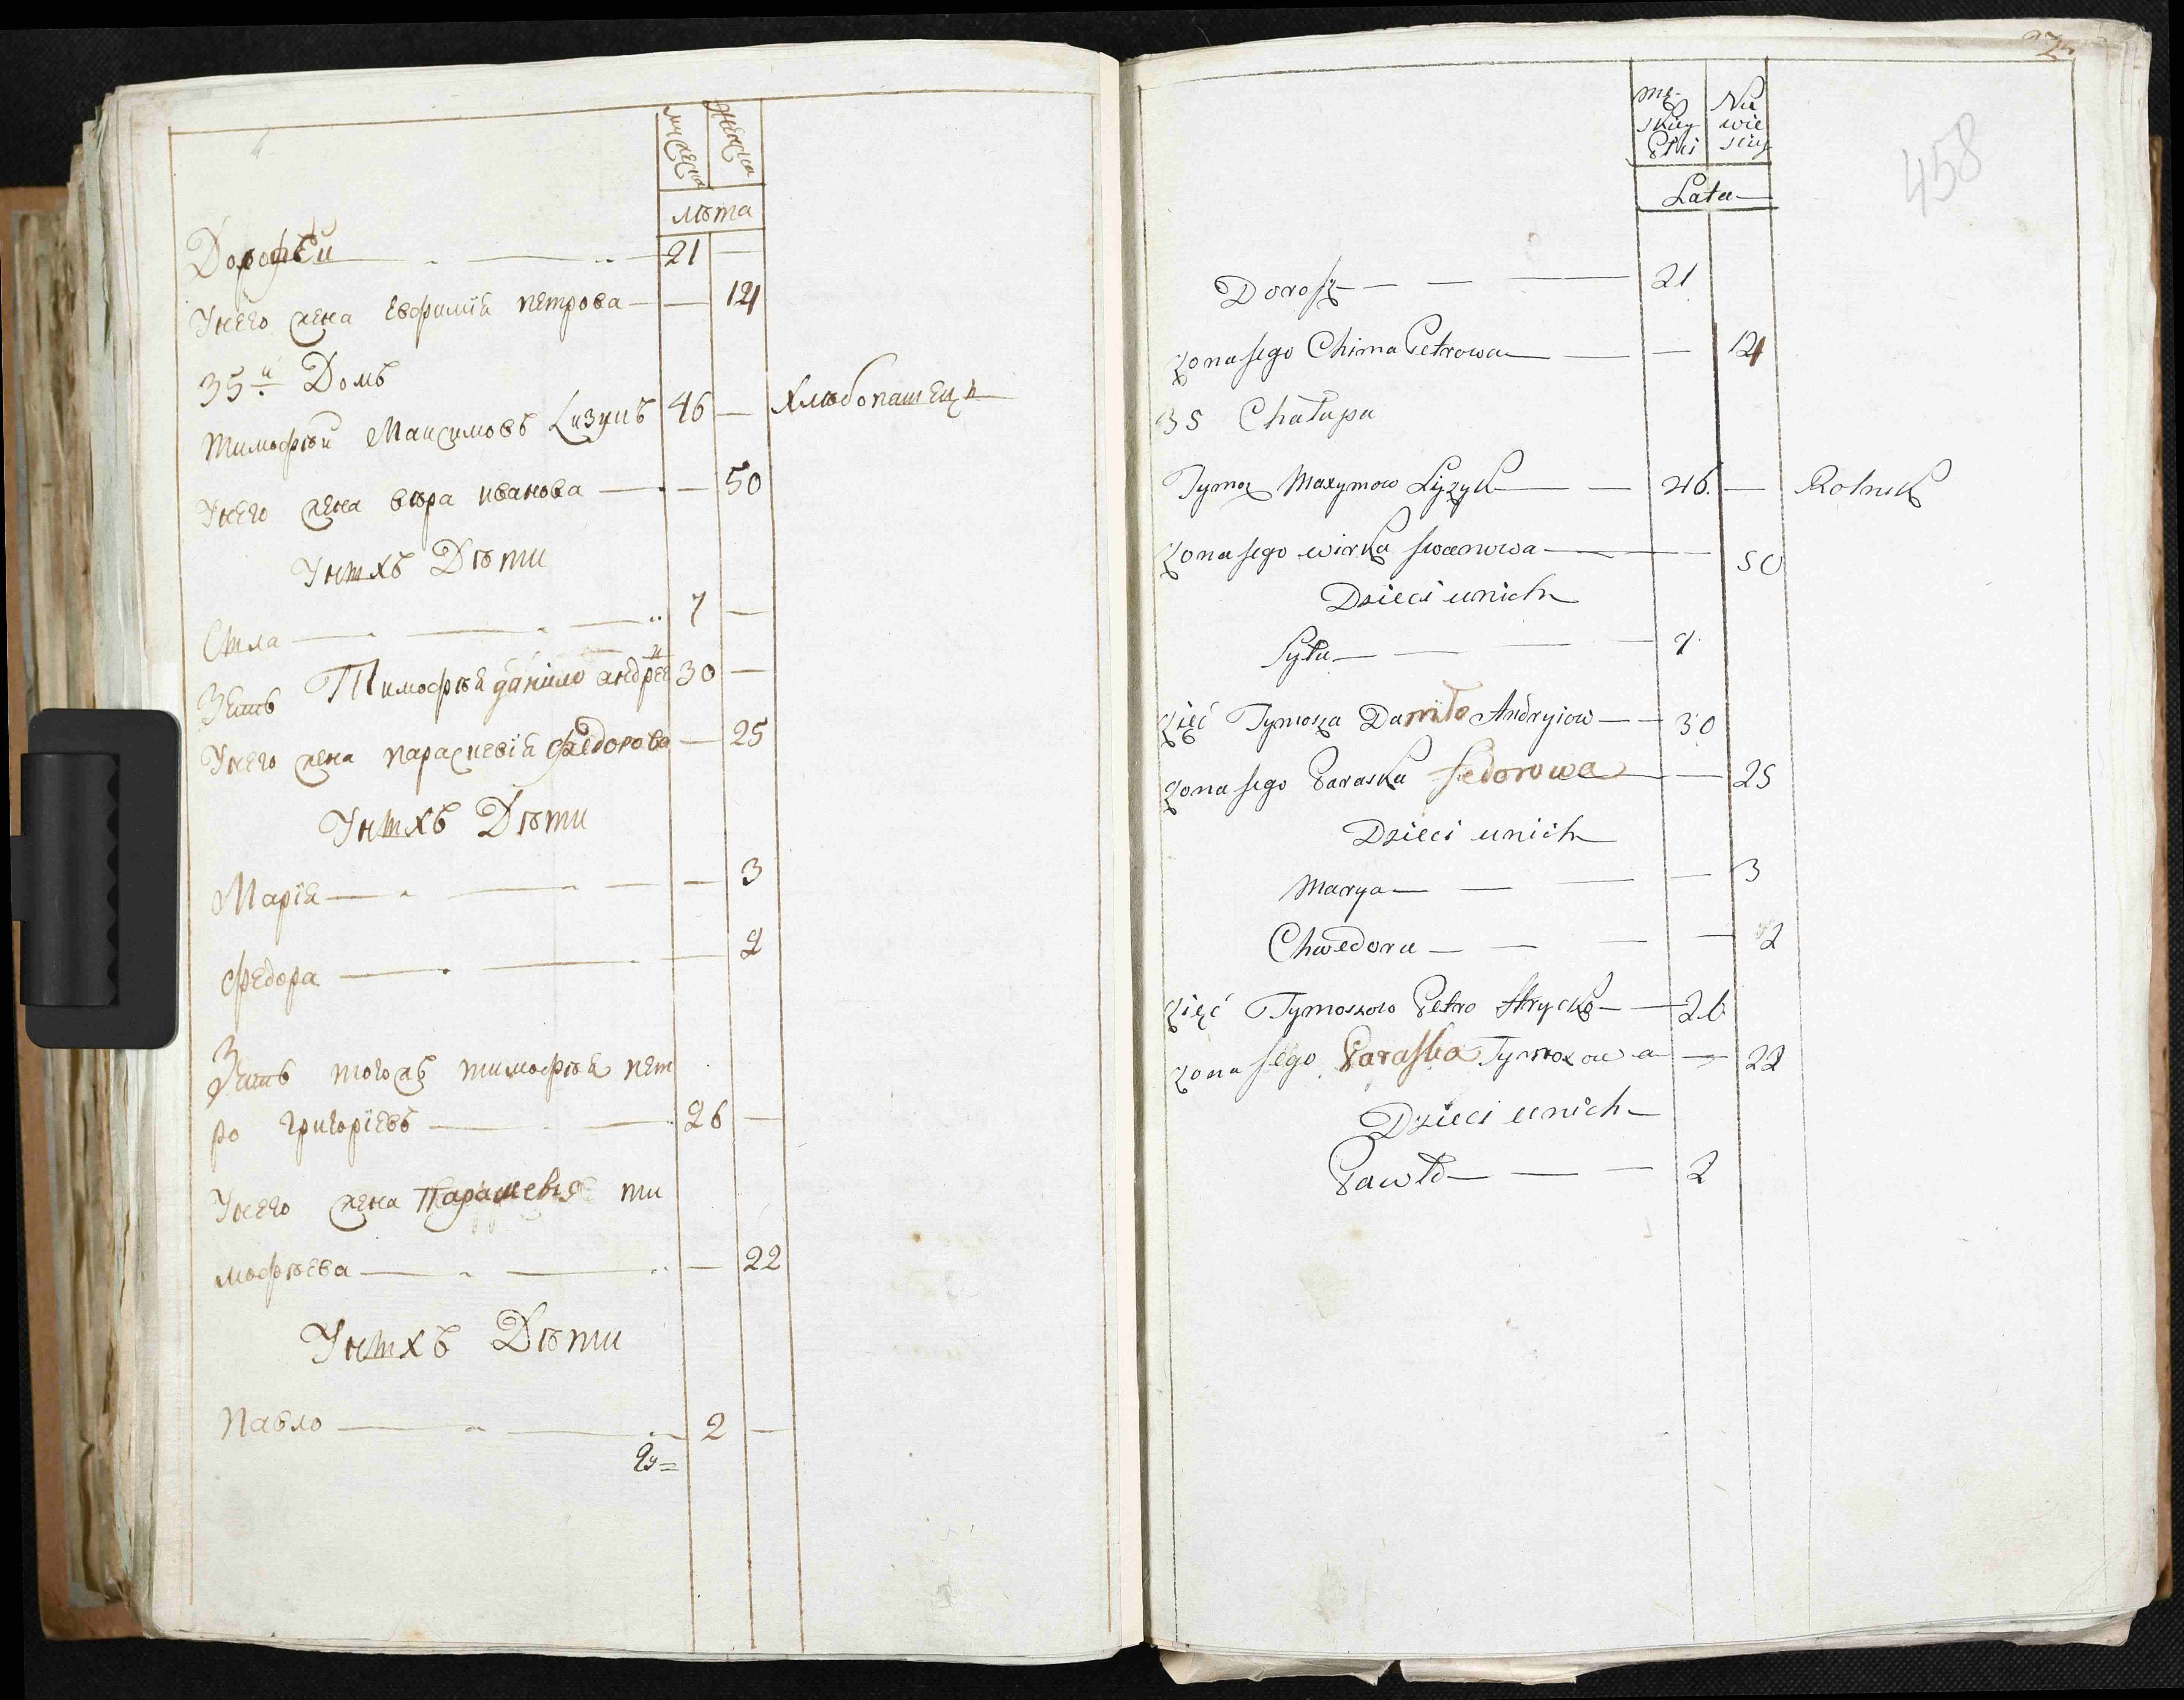 мужеска
женска
лѣта
Дорофѣй 21 —
У него жена Евфимия петрова — — 121
35й Домъ
Тимофѣй Максимовъ Лизунъ 46 — Хлѣбопашецъ
У него жена вѣра иванова — — 50
У нихъ Дѣти
Сила — 7 —
Зеть Тимофѣя данило андрѣев 30 —
У него жена параскевія федорова — 25
У нихъ Дѣти
Марія — — 3
Федора — — 2
Зеть тогожъ тимофѣя пет
ро григоріевъ — 26 —
У него жена Параскевія ти
мофѣева — — 22
У нихъ Дѣти
Павло — 2 —
męskiey Płci
Nie wie sciey
458
Lata
Dorosz — — — 21
żona jego Chima Petrowa — — 121
35 Chałupa
Tymosz Maxymow Łyzyk — — 46 — Rolnik
żona jego wirka jwanowa — — 50
Dzieci unich
Syła — — — 7
zięć Tymosza Daniło Andryiow — — 30
żona jego Paraska fedorowa — — 25
Dzieci unich
Marya — — — — 3
Chwedora — — — — 2
zięć Tymoszow Petro Hrycko — — 26
żona jego Paraska Tymoszowa — 22
Dzieci unich
Pawło — — — 2